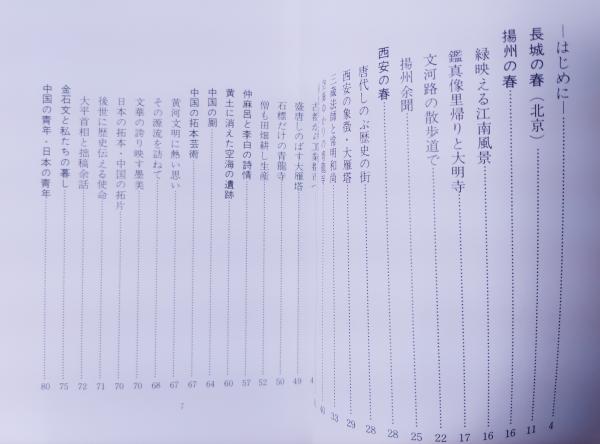 ―はじめに― 4
長城の春（北京） 11
揚州の春 16
緑映える江南風景 16
鑑真像里帰りと大明寺 17
文河路の散歩道で 22
揚州余聞 25
西安の春 28
唐代しのぶ歴史の街 28
西安の象徴・大雁塔 29
三蔵法師と常明和尚 33
40
盛唐しのばす大雁塔 49
石標だけの青龍寺 50
僧も田畑耕し生産 52
仲麻呂と李白の詩情 57
黄土に消えた空海の遺跡 60
中国の厠 64
中国の拓本芸術 67
黄河文明に熱い思い 67
その源流を訪ねて 68
文華の誇り映す墨美 70
日本の拓本・中国の拓片 70
後世に歴史伝える使命 71
大平首相と拙稿余話 72
金石文と私たちの暮し 75
中国の青年・日本の青年 80
7